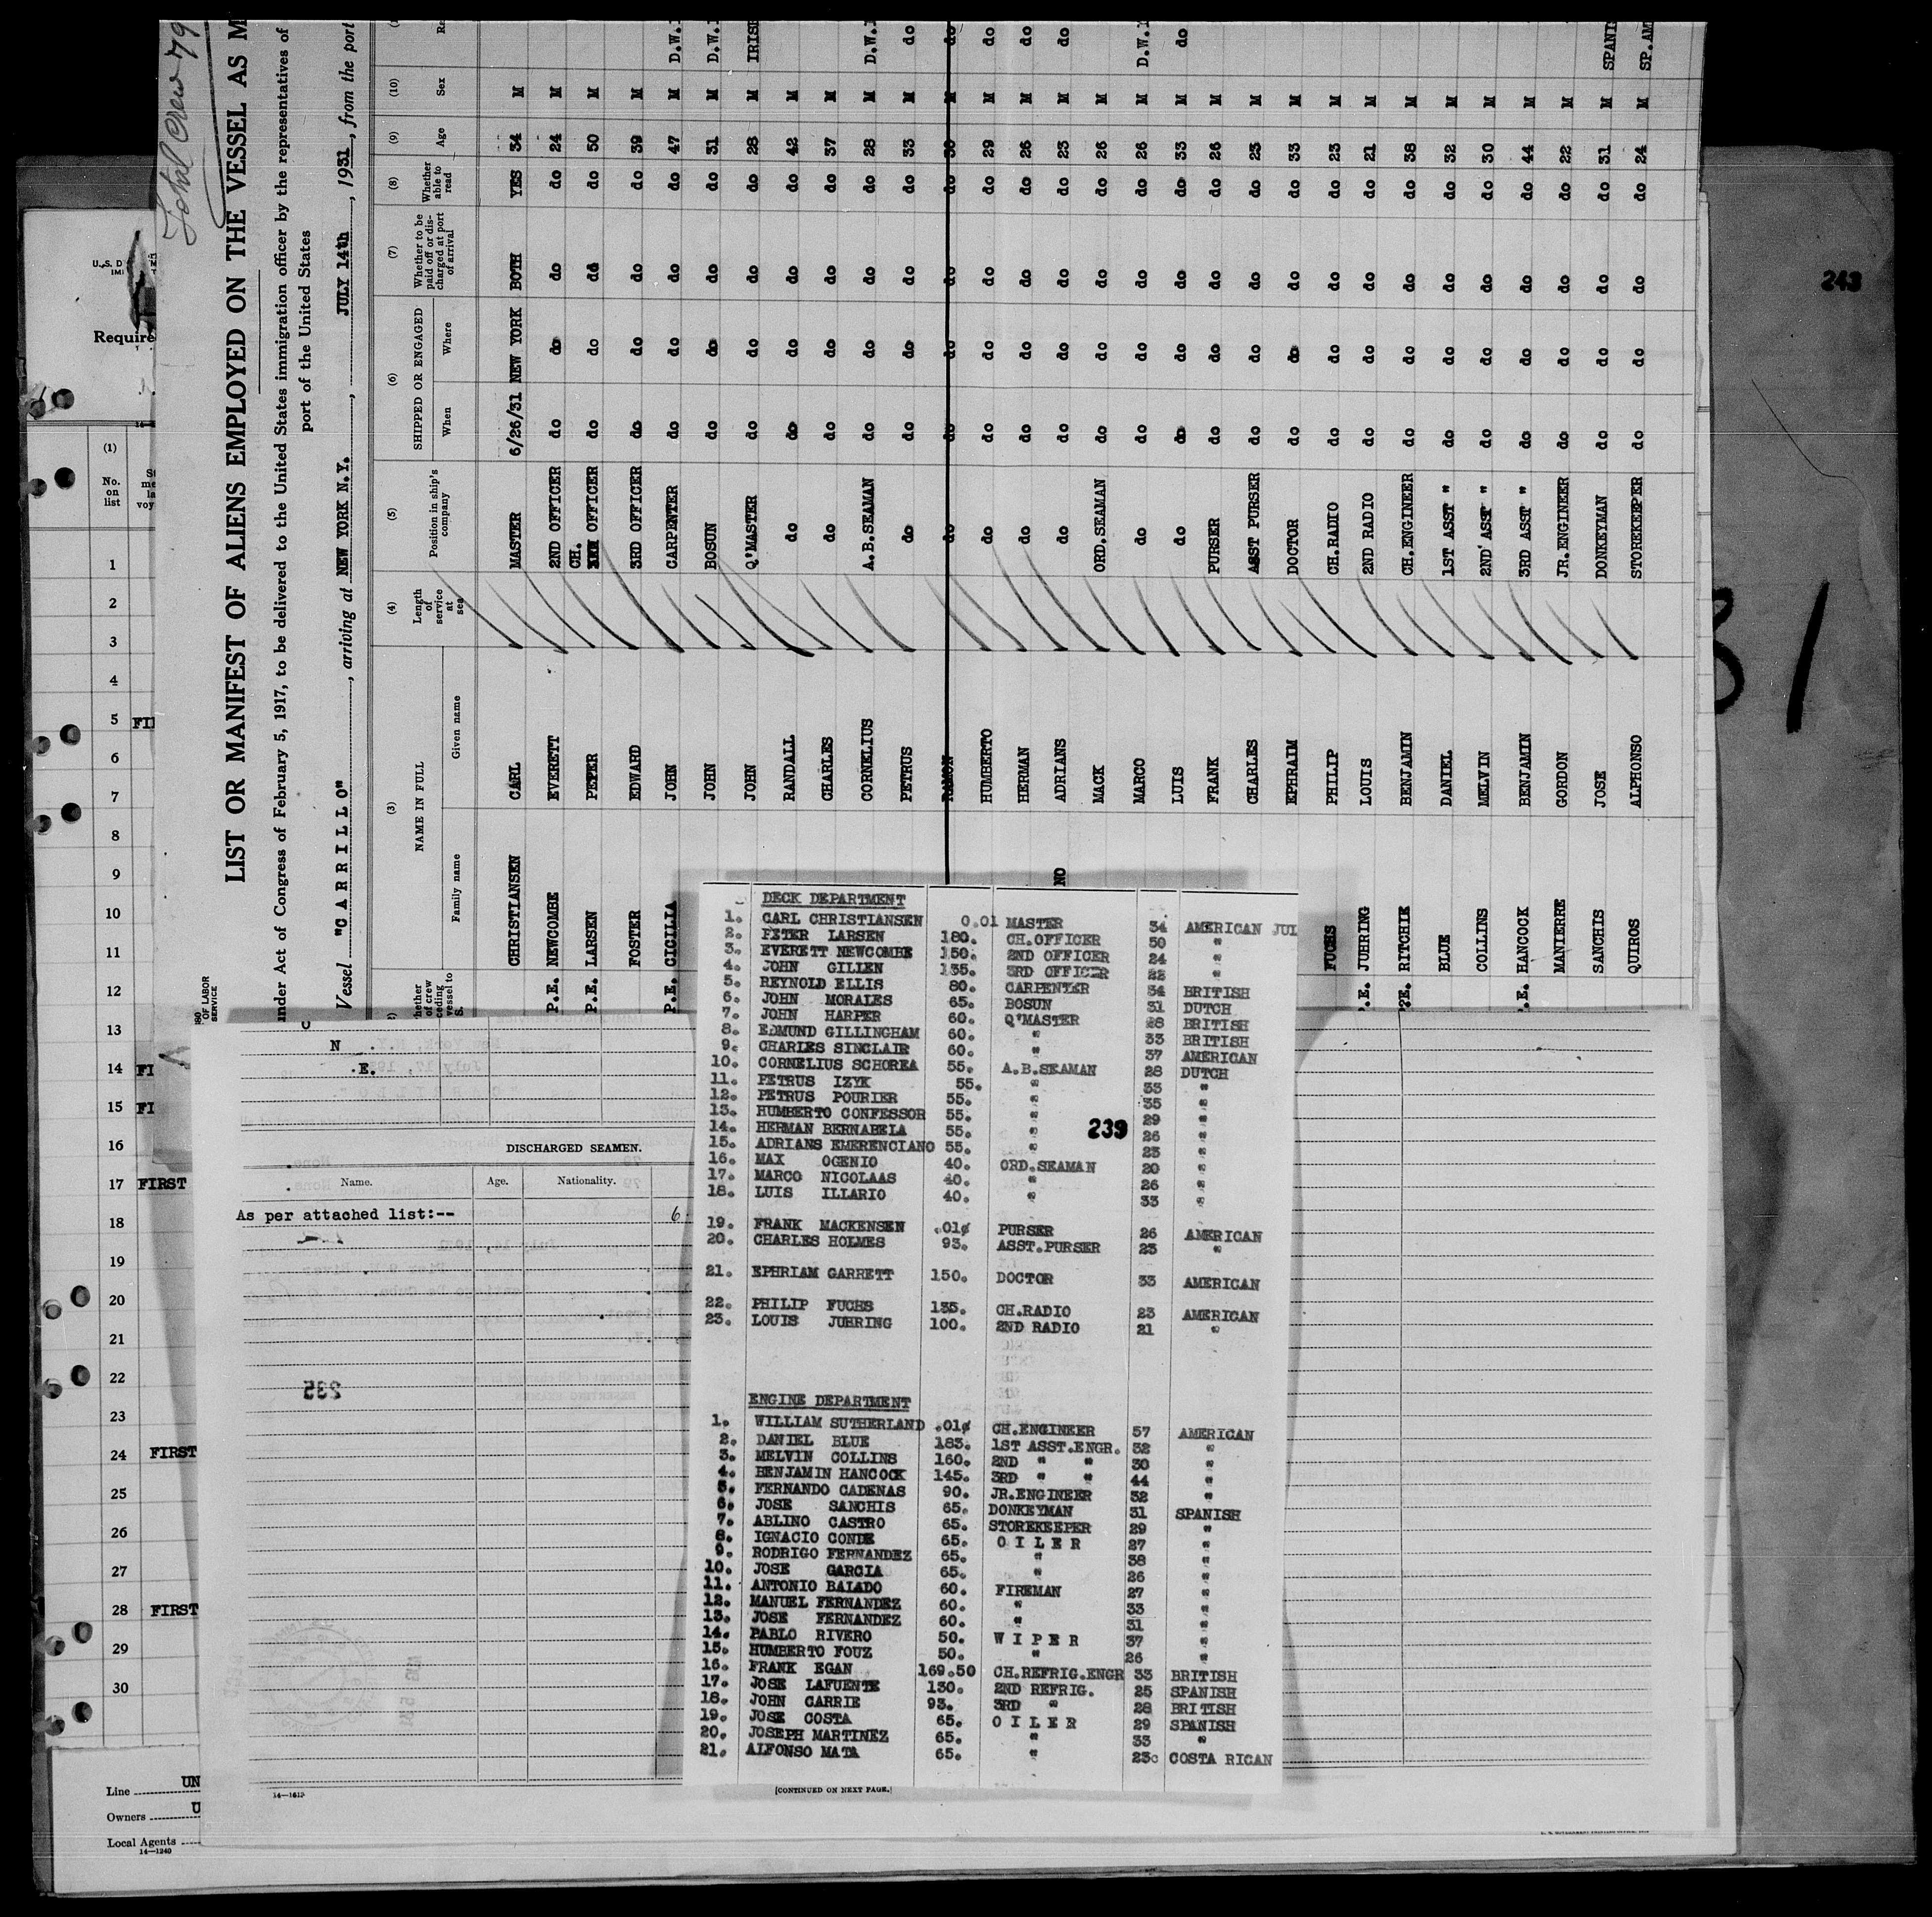 Total Crew 79
LIST OR MANIFEST OF ALIENS EMPLOYED ON THE VESSEL AS M
under Act of Congress of February 5, 1917, to be delivered to the United States immigration officer by the representatives of
port of the United States
Vessel "C A R R I L L O", arriving at NEW YORK N.Y., JULY 14th, 1931, from the port
(3) (4) (5) (6) (7) (8) (9) (10)
NAME IN FULL
Family name Given name
Length of service at sea
Position in ship's company
SHIPPED OR ENGAGED
When Where
Whether to be paid off or discharged at port of arrival
Whether able to read
Age
Sex
CHRISTIANSEN CARL MASTER 6/26/31 NEW YORK BOTH YES 34 M
P.E. NEWCOMBE EVERETT 2ND OFFICER do do do do 24 M
P.E. LARSEN PETER CH. OFFICER do do do do 50 M
FOSTER EDWARD 3RD OFFICER do do do do 39 M
P.E. CICILIA JOHN CARPENTER do do do do 47 M D.W.I
JOHN BOSUN do do do do 31 M D.W.I
JOHN Q'MASTER do do do do 28 M IRISH
RANDALL do do do do do 42 M
CHARLES do do do do do 37 M
CORNELIUS A.B.SEAMAN do do do do 28 M D.W.I
PETRUS do do do do do 33 M do
RAMON do do do do do 30 M do
HUMBERTO do do do do do 29 M do
HERMAN do do do do do 26 M do
NO ADRIANS do do do do do 23 M do
MACK ORD.SEAMAN do do do do 26 M
MARCO do do do do do 26 M D.W.I
LUIS do do do do do 33 M do
FRANK PURSER do do do do 26 M
CHARLES ASST PURSER do do do do 23 M
EPHRAIM DOCTOR do do do do 33 M
FUCHS PHILIP CH.RADIO do do do do 23 M
P.E. JUHRING LOUIS 2ND RADIO do do do do 21 M
P.E. RITCHIE BENJAMIN CH.ENGINEER do do do do 38 M
BLUE DANIEL 1ST ASST " do do do do 32 M
COLLINS MELVIN 2ND' ASST " do do do do 30 M
.E. HANCOCK BENJAMIN 3RD ASST " do do do do 44 M
MANIERRE GORDON JR.ENGINEER do do do do 22 M
SANCHIS JOSE DONKEYMAN do do do do 31 M SPANI
QUIROS ALPHONSO STOREKEEPER do do do do 24 M SP.AM
243
U.S. D
IMI
Require
OF LABOR
SERVICE
(1)
No. on list
1
2
3
4
5 FI
6
7
8
9
10
11
12
13
14 FI
15 FI
16
17 FIRST
18
19
20
21
22
23
24 FIRST
25
26
27
28 FIRST
29
30
Line UN
Owners U
Local Agents
14—1240
N
.E.
DISCHARGED SEAMEN.
Name. Age. Nationality.
As per attached list:-- 6
235
[CONTINUED ON NEXT PAGE.]
DECK DEPARTMENT
1. CARL CHRISTIANSEN 0.01 MASTER 34 AMERICAN JUL
2. PETER LARSEN 180. CH.OFFICER 50 "
3. EVERETT NEWCOMBE 150. 2ND OFFICER 24 "
4. JOHN GILLEN 135. 3RD OFFICER 22 "
5. REYNOLD ELLIS 80. CARPENTER 34 BRITISH
6. JOHN MORALES 65. BOSUN 31 DUTCH
7. JOHN HARPER 60. Q'MASTER 28 BRITISH
8. EDMUND GILLINGHAM 60. " 33 BRITISH
9. CHARLES SINCLAIR 60. " 37 AMERICAN
10. CORNELIUS SCHOREA 55. A.B.SEAMAN 28 DUTCH
11. PETRUS IZYK 55. " 33 "
12. PETRUS POURIER 55. " 35 "
13. HUMBERTO CONFESSOR 55. " 29 "
14. HERMAN BERNABELA 55. " 26 "
239
15. ADRIANS EMERENCIANO 55. " 23 "
16. MAX OGENIO 40. ORD.SEAMAN 20 "
17. MARCO NICOLAAS 40. " 26 "
18. LUIS ILLARIO 40. " 33 "
19. FRANK MACKENSEN .01¢ PURSER 26 AMERICAN
20. CHARLES HOLMES 93. ASST.PURSER 23 "
21. EPHRIAM GARRETT 150. DOCTOR 33 AMERICAN
22. PHILIP FUCHS 135. CH.RADIO 23 AMERICAN
23. LOUIS JUHRING 100. 2ND RADIO 21 "
ENGINE DEPARTMENT
1. WILLIAM SUTHERLAND .01¢ CH.ENGINEER 57 AMERICAN
2. DANIEL BLUE 183. 1ST ASST.ENGR. 32 "
3. MELVIN COLLINS 160. 2ND " " 30 "
4. BENJAMIN HANCOCK 145. 3RD " " 44 "
5. FERNANDO CADENAS 90. JR.ENGINEER 32 "
6. JOSE SANCHIS 65. DONKEYMAN 31 SPANISH
7. ABLINO CASTRO 65. STOREKEEPER 29 "
8. IGNACIO CONDE 65. O I L E R 27 "
9. RODRIGO FERNANDEZ 65. " 38 "
10. JOSE GARCIA 65. " 26 "
11. ANTONIO BALADO 60. FIREMAN 27 "
12. MANUEL FERNANDEZ 60. " 33 "
13. JOSE FERNANDEZ 60. " 31 "
14. PABLO RIVERO 50. W I P E R 37 "
15. HUMBERTO FOUZ 50. " 26 "
16. FRANK EGAN 169.50 CH.REFRIG.ENGR 33 BRITISH
17. JOSE LAFUENTE 130. 2ND REFRIG. 25 SPANISH
18. JOHN CARRIE 93. 3RD " 28 BRITISH
19. JOSE COSTA 65. O I L E R 29 SPANISH
20. JOSEPH MARTINEZ 65. " 33 "
21. ALFONSO MATA 65. " 23 COSTA RICAN